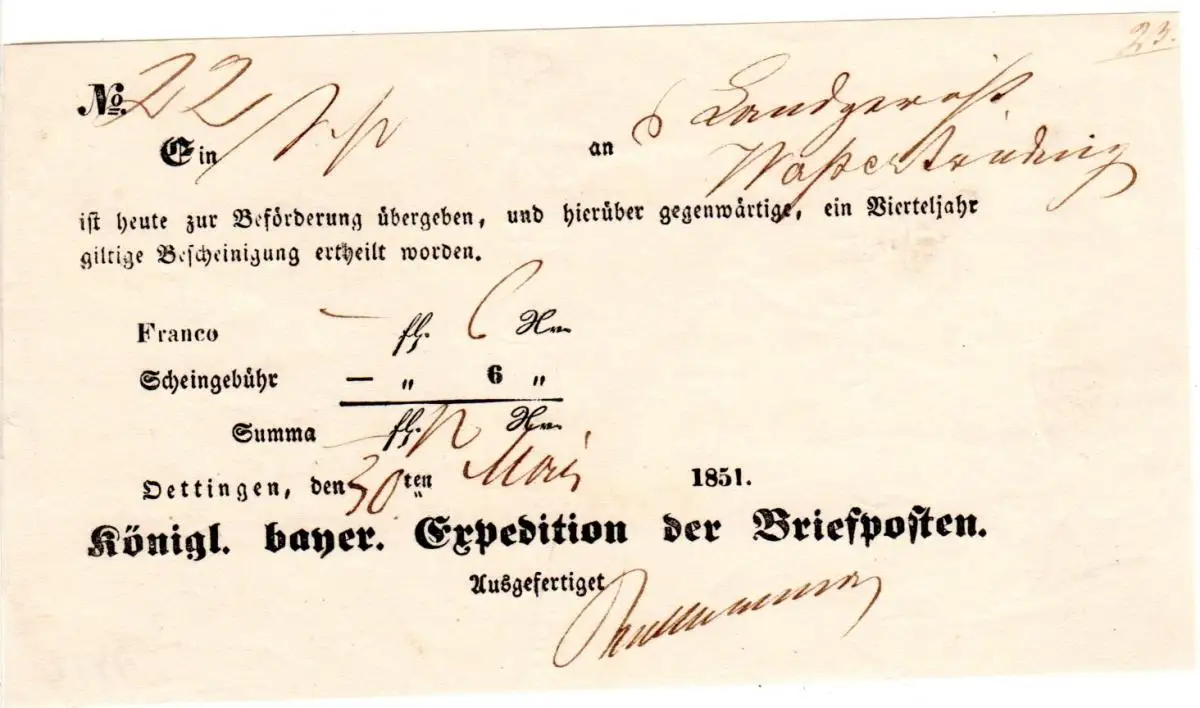 23.
No. 22
Ein an Landgericht
Waßertrüding
ist heute zur Beförderung übergeben, und hierüber gegenwärtige, ein Vierteljahr
giltige Bescheinigung ertheilt worden.
Franco — fl. 6 Kr.
Scheingebühr — „ 6 „
Summa — fl. Kr.
Oettingen, den 30ten Mai 1851.
Königl. bayer. Expedition der Briefposten.
Ausgefertiget